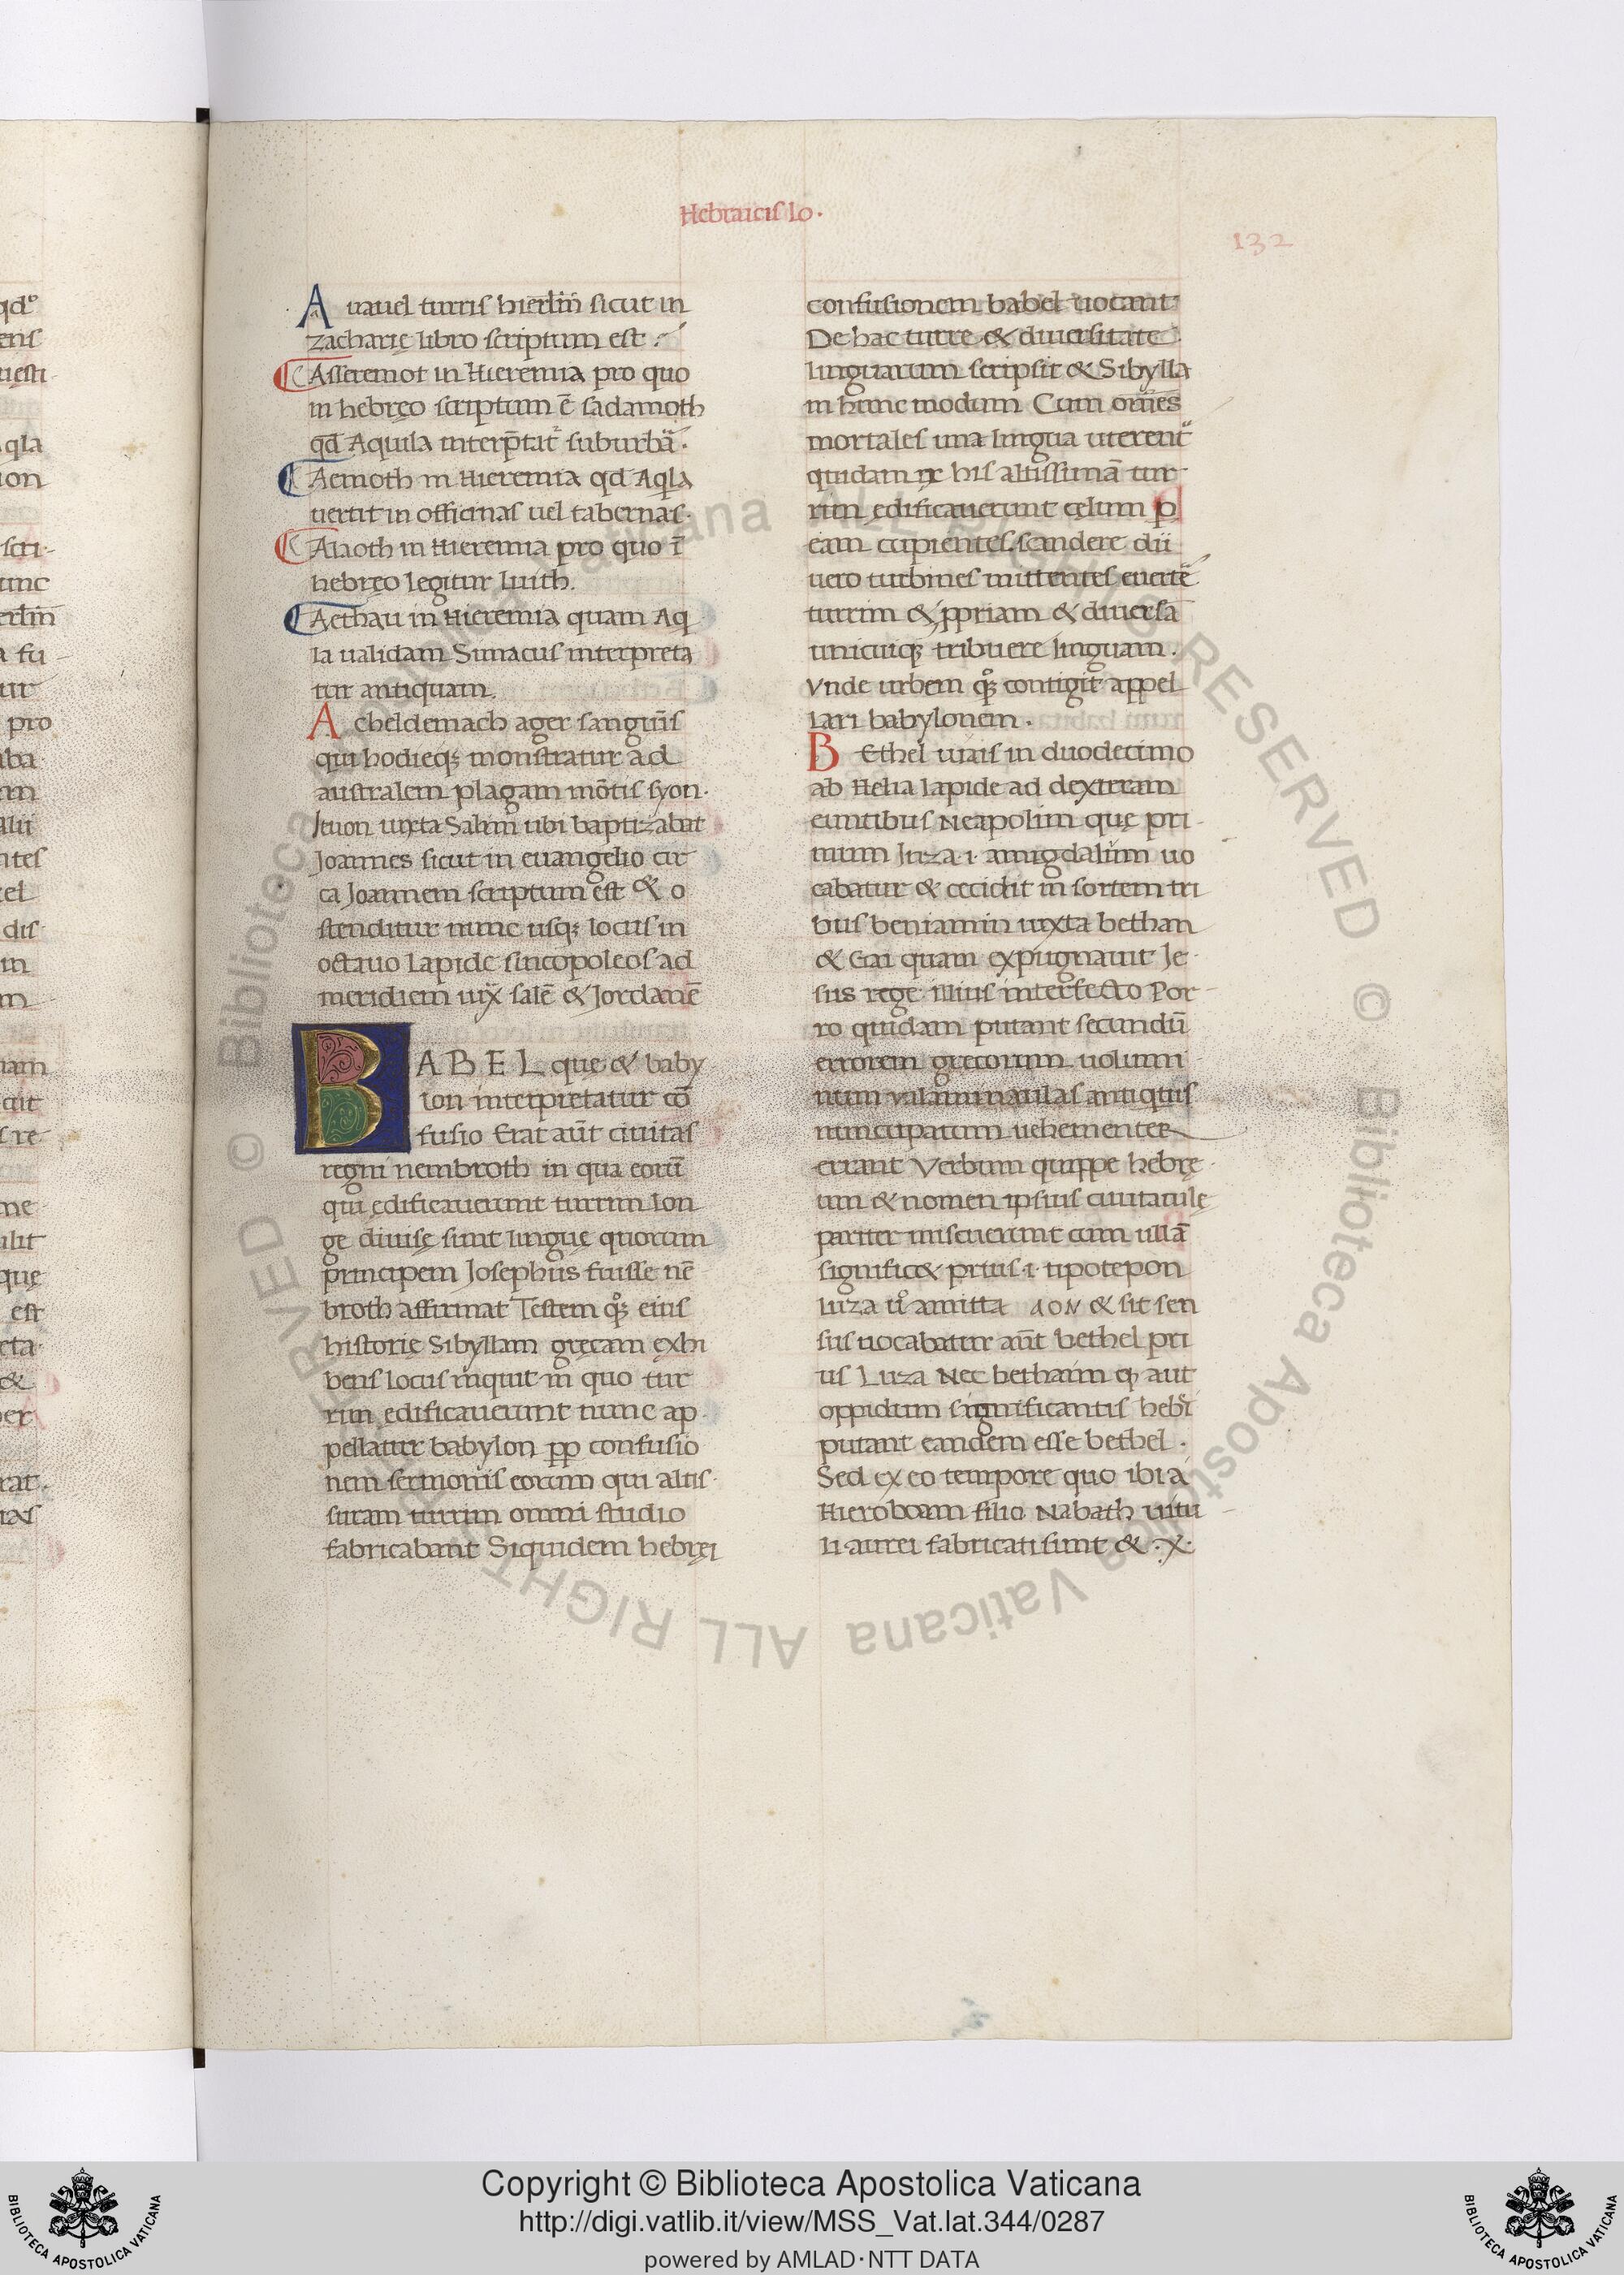 Hebraicis lo.
132
Auauel turris hierlm̄ sicut in
zacharię libro scriptum est.
Asseremot in Hieremia pro quo
in hebręo scriptum ē sadamoth
qd̄ Aquila interp̄tat᷑ suburbā.
Aemoth in Hieremia qd̄ Aqla
uertit in officinas uel tabernas.
Alaoth in Hieremia pro quo ī
hebręo legitur luith.
Aethau in Hieremia quam Aq
la ualidam Simacus interpreta
tur antiquam.
Acheldemach ager sanguīs
qui hodieq; monstratur ad
australem plagam mōtis syon.
iuxta Salim ubi baptizabat
Joannes sicut in euangelio cir
ca Joannem scriptum est & o
stenditur nunc usq; locus in
octauo lapide sincopoleos ad
meridiem iux̄ salē & Jordanē
BABEL que & baby
lon interpretatur cō
fusio Erat aūt ciuitas
regni nembroth in qua eorū
qui ędificauerunt turrim lon
ge diuisę sunt linguę quorum
principem Josephus fuisse nē
broth affirmat Testem qͦ; eius
historię Sibyllam gręcam exhi
bens locus inquit in quo tur
rim ędificauerunt nunc ap
pellatur babylon pp̄ confusio
nem sermonis eorum qui altis
suram turrim omni studio
fabricabant Siquidem hebręi
confusionem babel uocant
De hac turre & diuersitate
linguarum scripsit & Sibylla
in hunc modum Cum omēs
mortales una lingua uterent᷑
quidam ex his altissimā tur
rim ędificauerunt cęlum ꝑ
eam cupientes scandere dii
uero turbines mittentes euertē
turrim & ꝓpriam & diuersā
unicuiq; tribuere linguam.
Vnde urbem qͦ; contigit appel
lari babylonem.
BEthel uicus in duodecimo
ab Helia lapide ad dextram
euntibus Neapolim quę pri
mum luza .i. amigdalum uo
cabatur & cecidit in sortem tri
bus beniamin iuxta bethan
& Gai quam expugnauit Je
sus rege illius interfecto Por
ro quidam putant secundū
errorem gręcorum uolumi
num antiquis
nuncupatum uehementer
errant Verbum quippe hebrę
um & nomen ipsius ciuitatulę
pariter miscuerunt cum ullā
signific& prius .i.
luza uͦ amitta AON & sit sen
sus uocabatur aūt bethel pri
us Luza Nec bethaim aut
oppidum significantis
putant eandem esse bethel.
Sed ex eo tempore quo ibi a
Hieroboam filio Nabath uitu
li aurei fabricati sunt & .x.
Copyright © Biblioteca Apostolica Vaticana
http://digi.vatlib.it/view/MSS_Vat.lat.344/0287
powered by AMLAD·NTT DATA